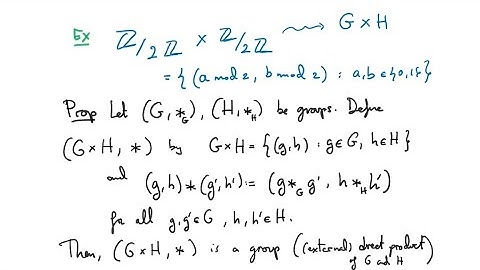 Ex ℤ/2ℤ × ℤ/2ℤ ⇝ G×H
= { (a mod 2, b mod 2) : a,b ∈ {0,1} }
Prop Let (G, *_G), (H, *_H) be groups. Define
(G×H, *) by G×H = {(g,h) : g∈G, h∈H}
and (g,h)*(g',h') := (g *_G g', h *_H h')
for all g,g'∈G, h,h'∈H.
Then, (G×H, *) is a group ((external) direct product
of G and H)